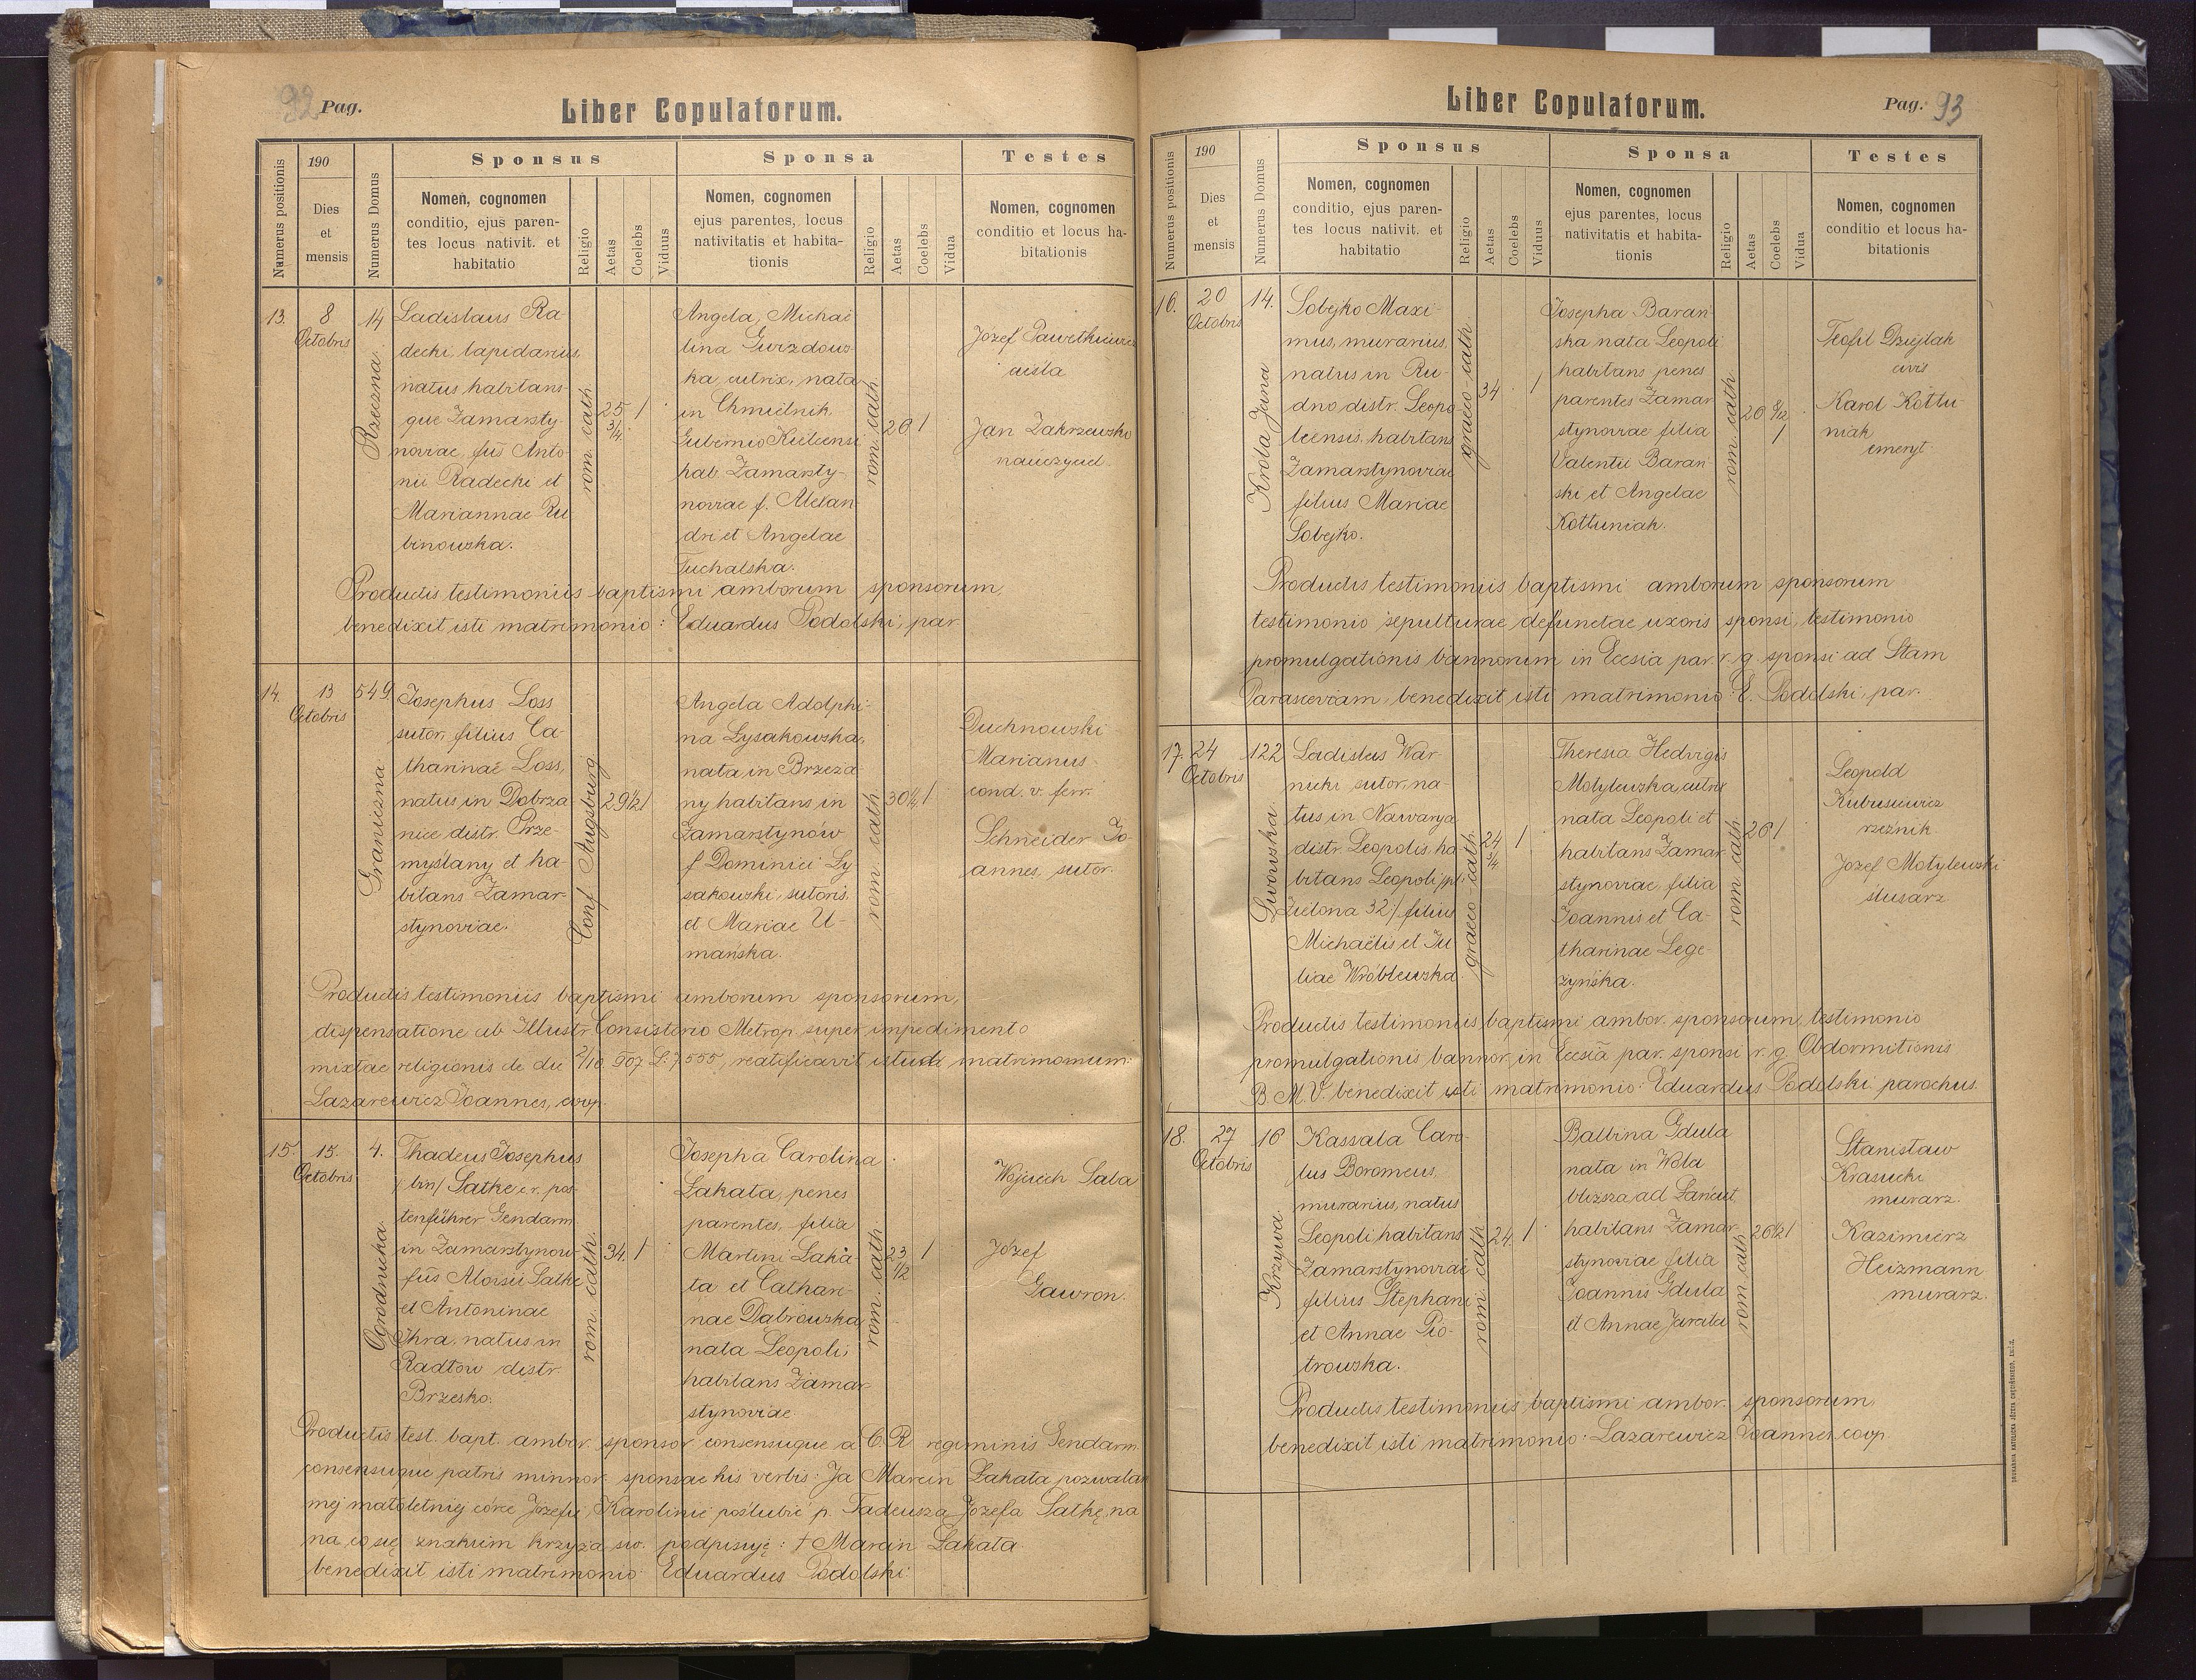 92 Pag.
Liber Copulatorum.
Numerus positionis
190
Dies
et
mensis
Numerus Domus
Sponsus
Nomen, cognomen
conditio, ejus paren-
tes locus nativit. et
habitatio
Religio
Aetas
Coelebs
Viduus
Sponsa
Nomen, cognomen
ejus parentes, locus
nativitatis et habita-
tionis
Religio
Aetas
Coelebs
Vidua
Testes
Nomen, cognomen
conditio et locus ha-
bitationis
13.
8
Octobris
14
Rzeczna.
Ladislaus Ra-
decki, lapidarius,
natus habitans-
que Zamarsty-
noviae, fius Anto-
nii Radecki et
Mariannae Ru
binowska.
rom. cath.
25 3/4
1
Angela, Michae
lina Gwizdows-
ka, cutrix, nata
in Chmielnik
Gubernio Kielcensi
hab. Zamarsty-
noviae f. Alexan
dri et Angelae
Tuchalska.
rom. cath.
20
1
Józef Pawełkiewicz
Jan Zakrzewski
nauczyciel
Productis testimoniis baptismi amborum sponsorum,
benedixit isti matrimonio: Eduardus Podolski, par.
14.
13
Octobris
549.
Graniczna
Josephus Loss
sutor, filius Ca-
tharinae Loss,
natus in Dobrza
nice distr. Prze-
myślany et ha-
bitans Zamar-
stynoviae.
Conf. Augsburg
29 1/2
1
Angela Adolphi-
na Łysakowska,
nata in Brzeża
ny habitans in
Zamarstynów
f. Dominici Ły
sakowski, sutoris,
et Mariae U-
mańska.
rom. cath.
30 1/4
1
Duchnowski
Marianus
cond. v. ferr.
Schneider Jo-
annes, sutor.
Productis testimoniis baptismi amborum sponsorum,
dispensatione ab Illustr. Consistorio Metrop. super impedimento
mixtae religionis de die 2/10. 907 L. 7.555, reatificavit istud matrimonium:
Lazarewicz Joannes, coop.
15.
15.
Octobris
4.
Ogrodnicka.
Thadeus Josephus
/bin/ Satke c. r. pos-
tenführer Gendarm.
in Zamarstynow
fius Aloisii Satke
et Antoninae
Ihra, natus in
Radłów distr.
Brzesko.
rom. cath.
34.
1
Josepha Carolina
Łakata, penes
parentes, filia
Martini Łaka-
ta et Cathari-
nae Dąbrowska,
nata Leopoli,
habitans Zamar-
stynoviae.
rom. cath.
23 1/2
1
Wojciech Sala
Józef
Gawron.
Productis test. bapt. ambor. sponsor. consensuque a C. R. regiminis Gendarm.
consensuque patris minnor. sponsae his verbis: Ja Marcin Łakata pozwalam
mej małoletniej córce Józefie, Karolinie poślubić p. Tadeusza Józefa Satkę, na
na co się znakiem krzyża św. podpisuję: † Marcin Łakata
benedixit isti matrimonio Eduardus Podolski

Liber Copulatorum.
Pag. 93
Numerus positionis
190
Dies
et
mensis
Numerus Domus
Sponsus
Nomen, cognomen
conditio, ejus paren-
tes locus nativit. et
habitatio
Religio
Aetas
Coelebs
Viduus
Sponsa
Nomen, cognomen
ejus parentes, locus
nativitatis et habita-
tionis
Religio
Aetas
Coelebs
Vidua
Testes
Nomen, cognomen
conditio et locus ha-
bitationis
16.
20
Octobris
14.
Króla Jana
Sobejko Maxi-
mus, murarius,
natus in Ru-
dno distr. Leopo
liensis, habitans
Zamarstynoviae
filius Mariae
Sobejko.
graeco-cath.
34
1
Josepha Barań
ska nata Leopoli
habitans penes
parentes Zamar
stynoviae filia
Valentii Barań
ski et Angelae
Kottuniak.
rom. cath.
20 8/12
1
Teofil Dziejlak
civis
Karol Kottu-
niak
emeryt.
Productis testimoniis baptismi amborum sponsorum
testimonio sepulturae defunctae uxoris sponsi, testimonio
promulgationis bannorum in Eccsia par. r. g. sponsi ad Stam
Parasceviam, benedixit isti matrimonio: E. Podolski, par.
17.
24
Octobris
122
Lwowska.
Ladislus War-
nicki sutor, na-
tus in Nawarya
distr. Leopolis, ha
bitans Leopoli /pl.
Zielona 32/ filius
Michaëlis et Ju
liae Wróblewska
graeco cath.
24 3/4
1
Theresia Hedvigis
Motylewska, cutrix
nata Leopoli et
habitans Zamar
stynoviae, filia
Joannis et Ca-
tharinae Lege-
żyńska.
rom. cath.
26
1
Leopold
Kubusiewicz
rzeźnik
Józef Motylewski
ślusarz
Productis testimoniis baptismi ambor. sponsorum, testimonio
promulgationis bannor. in Eccsia par. sponsi r. g. Obdormitionis
B. M. V. benedixit isti matrimonio: Eduardus Podolski parochus.
18.
27
Octobris
16
Krzywa.
Kassala Caro-
lus Boromeus,
murarius, natus
Leopoli habitans
Zamarstynoviae
filius Stephani
et Annae Pio-
trowska.
rom. cath.
24.
1
Balbina Gdula
nata in Wola
bliższa ad Łańcut
habitans Zamar-
stynoviae filia
Joannis Gdula
et Annae Jarata
rom. cath.
26 1/2
1
Stanisław
Krasucki
murarz.
Kazimierz
Heizmann
murarz.
Productis testimoniis baptismi ambor. sponsorum,
benedixit isti matrimonio: Lazarewicz Joannes, coop.